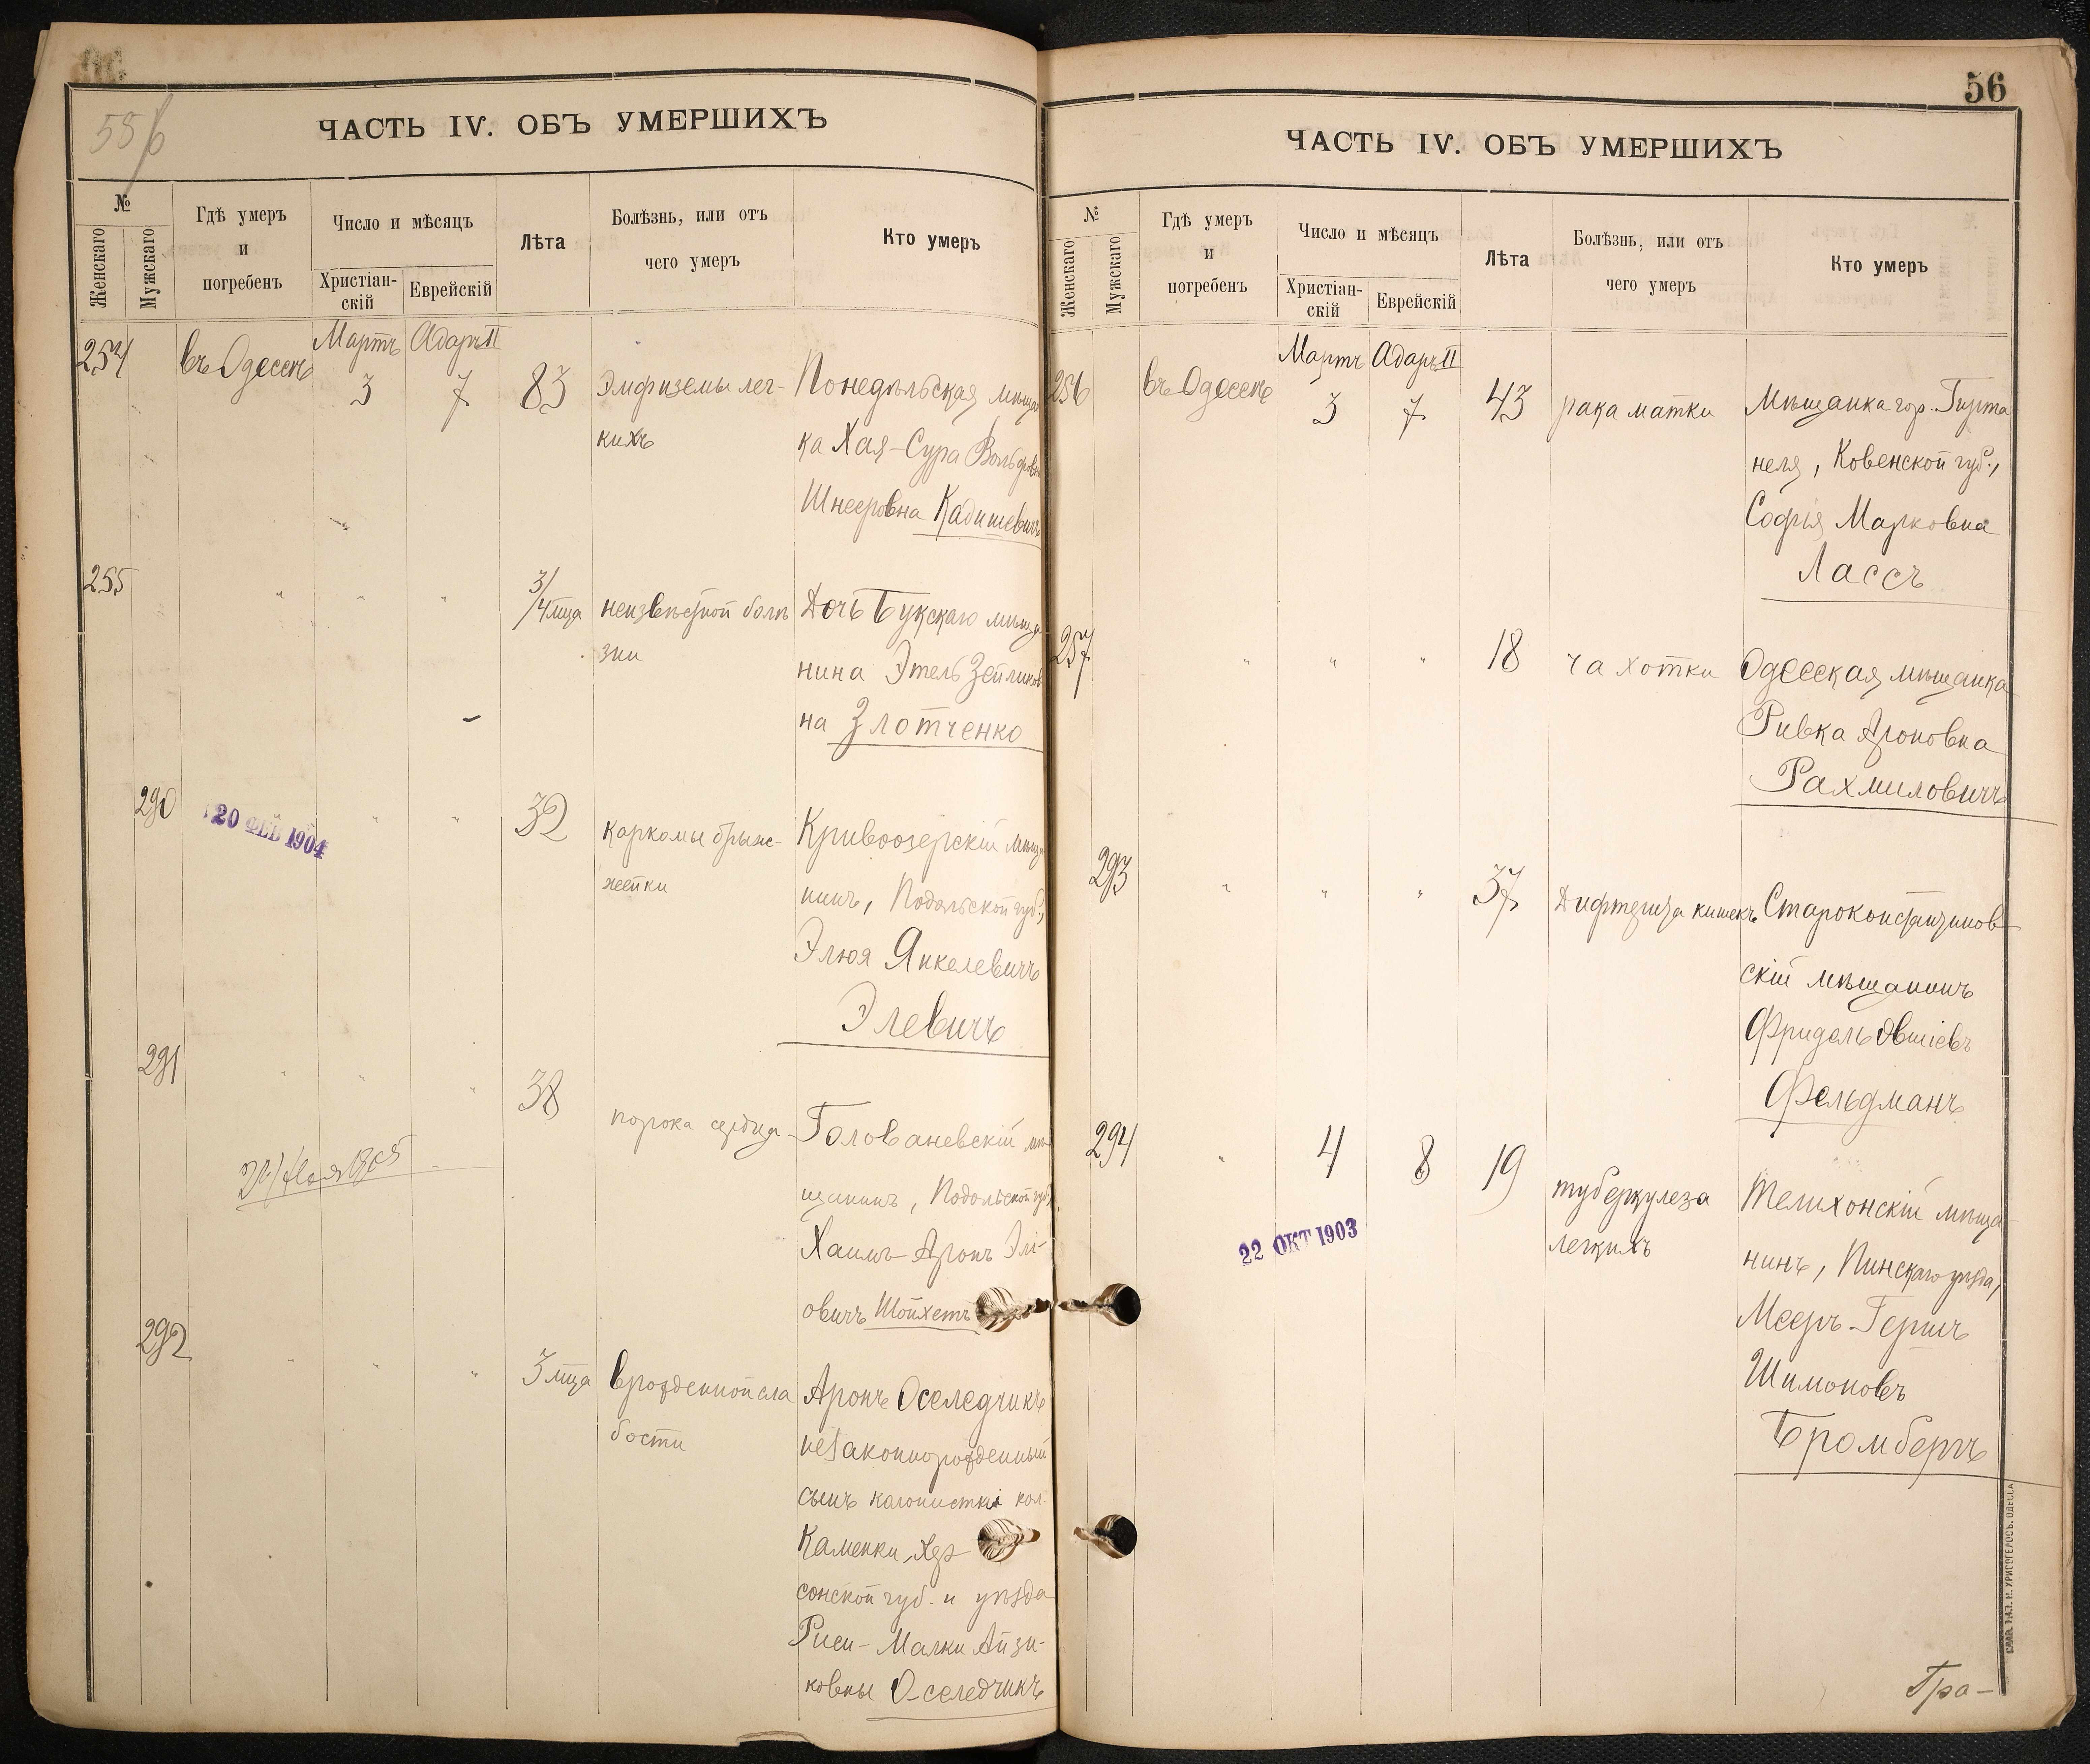 55б
ЧАСТЬ IV. ОБЪ УМЕРШИХЪ
№
Женскаго
Мужскаго
Гдѣ умеръ
и
погребенъ
Число и мѣсяцъ
Христіан-
скій
Еврейскій
Лѣта
Болѣзнь, или отъ
чего умеръ
Кто умеръ
Мартъ Адаръ II
254 въ Одессѣ 3 7 83 Эмфиземы лег- Понедѣльская мѣщан
кихъ ка Хая-Сура Вольфовна
Шнееровна Кадишевичъ
255 " " " 3/4 мца неизвѣстной болѣ Дочь Букскаго мѣща
зни нина Этель Зейликов
на Злотченко
290 " " " 32 саркомы брыж- Кривоозерскій мѣща
жейки нинъ, Подольской губ.,
20 ФЕВ 1904
Элюя Янкелевичъ
Элевичъ
291 " " " 38 порока сердца Голованевскій мѣ
щанинъ, Подольской губ.,
1905
Хаимъ-Аронъ Элі-
овичъ Шойхетъ
292 " " " 3 мца врожденной сла Аронъ Оселедчикъ
бости незаконнорожденный
сынъ колонистки кол.
Каменки, Хер-
сонской губ. и уѣзда
Риси-Малки Айзи-
ковны Оселедчикъ
56
ЧАСТЬ IV. ОБЪ УМЕРШИХЪ
№
Женскаго
Мужскаго
Гдѣ умеръ
и
погребенъ
Число и мѣсяцъ
Христіан-
скій
Еврейскій
Лѣта
Болѣзнь, или отъ
чего умеръ
Кто умеръ
Мартъ Адаръ II
256 въ Одессѣ 3 7 43 рака матки Мѣщанка гор. Гирта
неля, Ковенской губ.,
Софія Марковна
Лассъ
257 " " " 18 чахотки Одесская мѣщанка
Ривка Ароновна
Рахмиловичъ
293 " " " 37 Дифтерита кишекъ Староконстантинов
скій мѣщанинъ
Фридель Овшіевъ
Фельдманъ
294 " 4 8 19 туберкулеза Телихонскій мѣща
легкихъ нинъ, Пинскаго уѣзда,
22 ОКТ 1903
Мееръ-Гершъ
Шимоновъ
Бромбергъ
ОДЕССА
Гра-